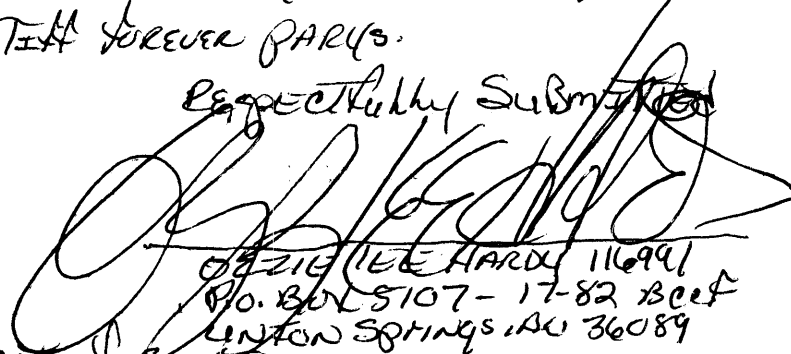 TIFF FOREVER PARYS.
RESPECTFULLY SUBMITTED
OZZIE LEE HARDY 116991
P.O. BOX 5107 - 17-82 BCCF
UNION SPRINGS, AL 36089